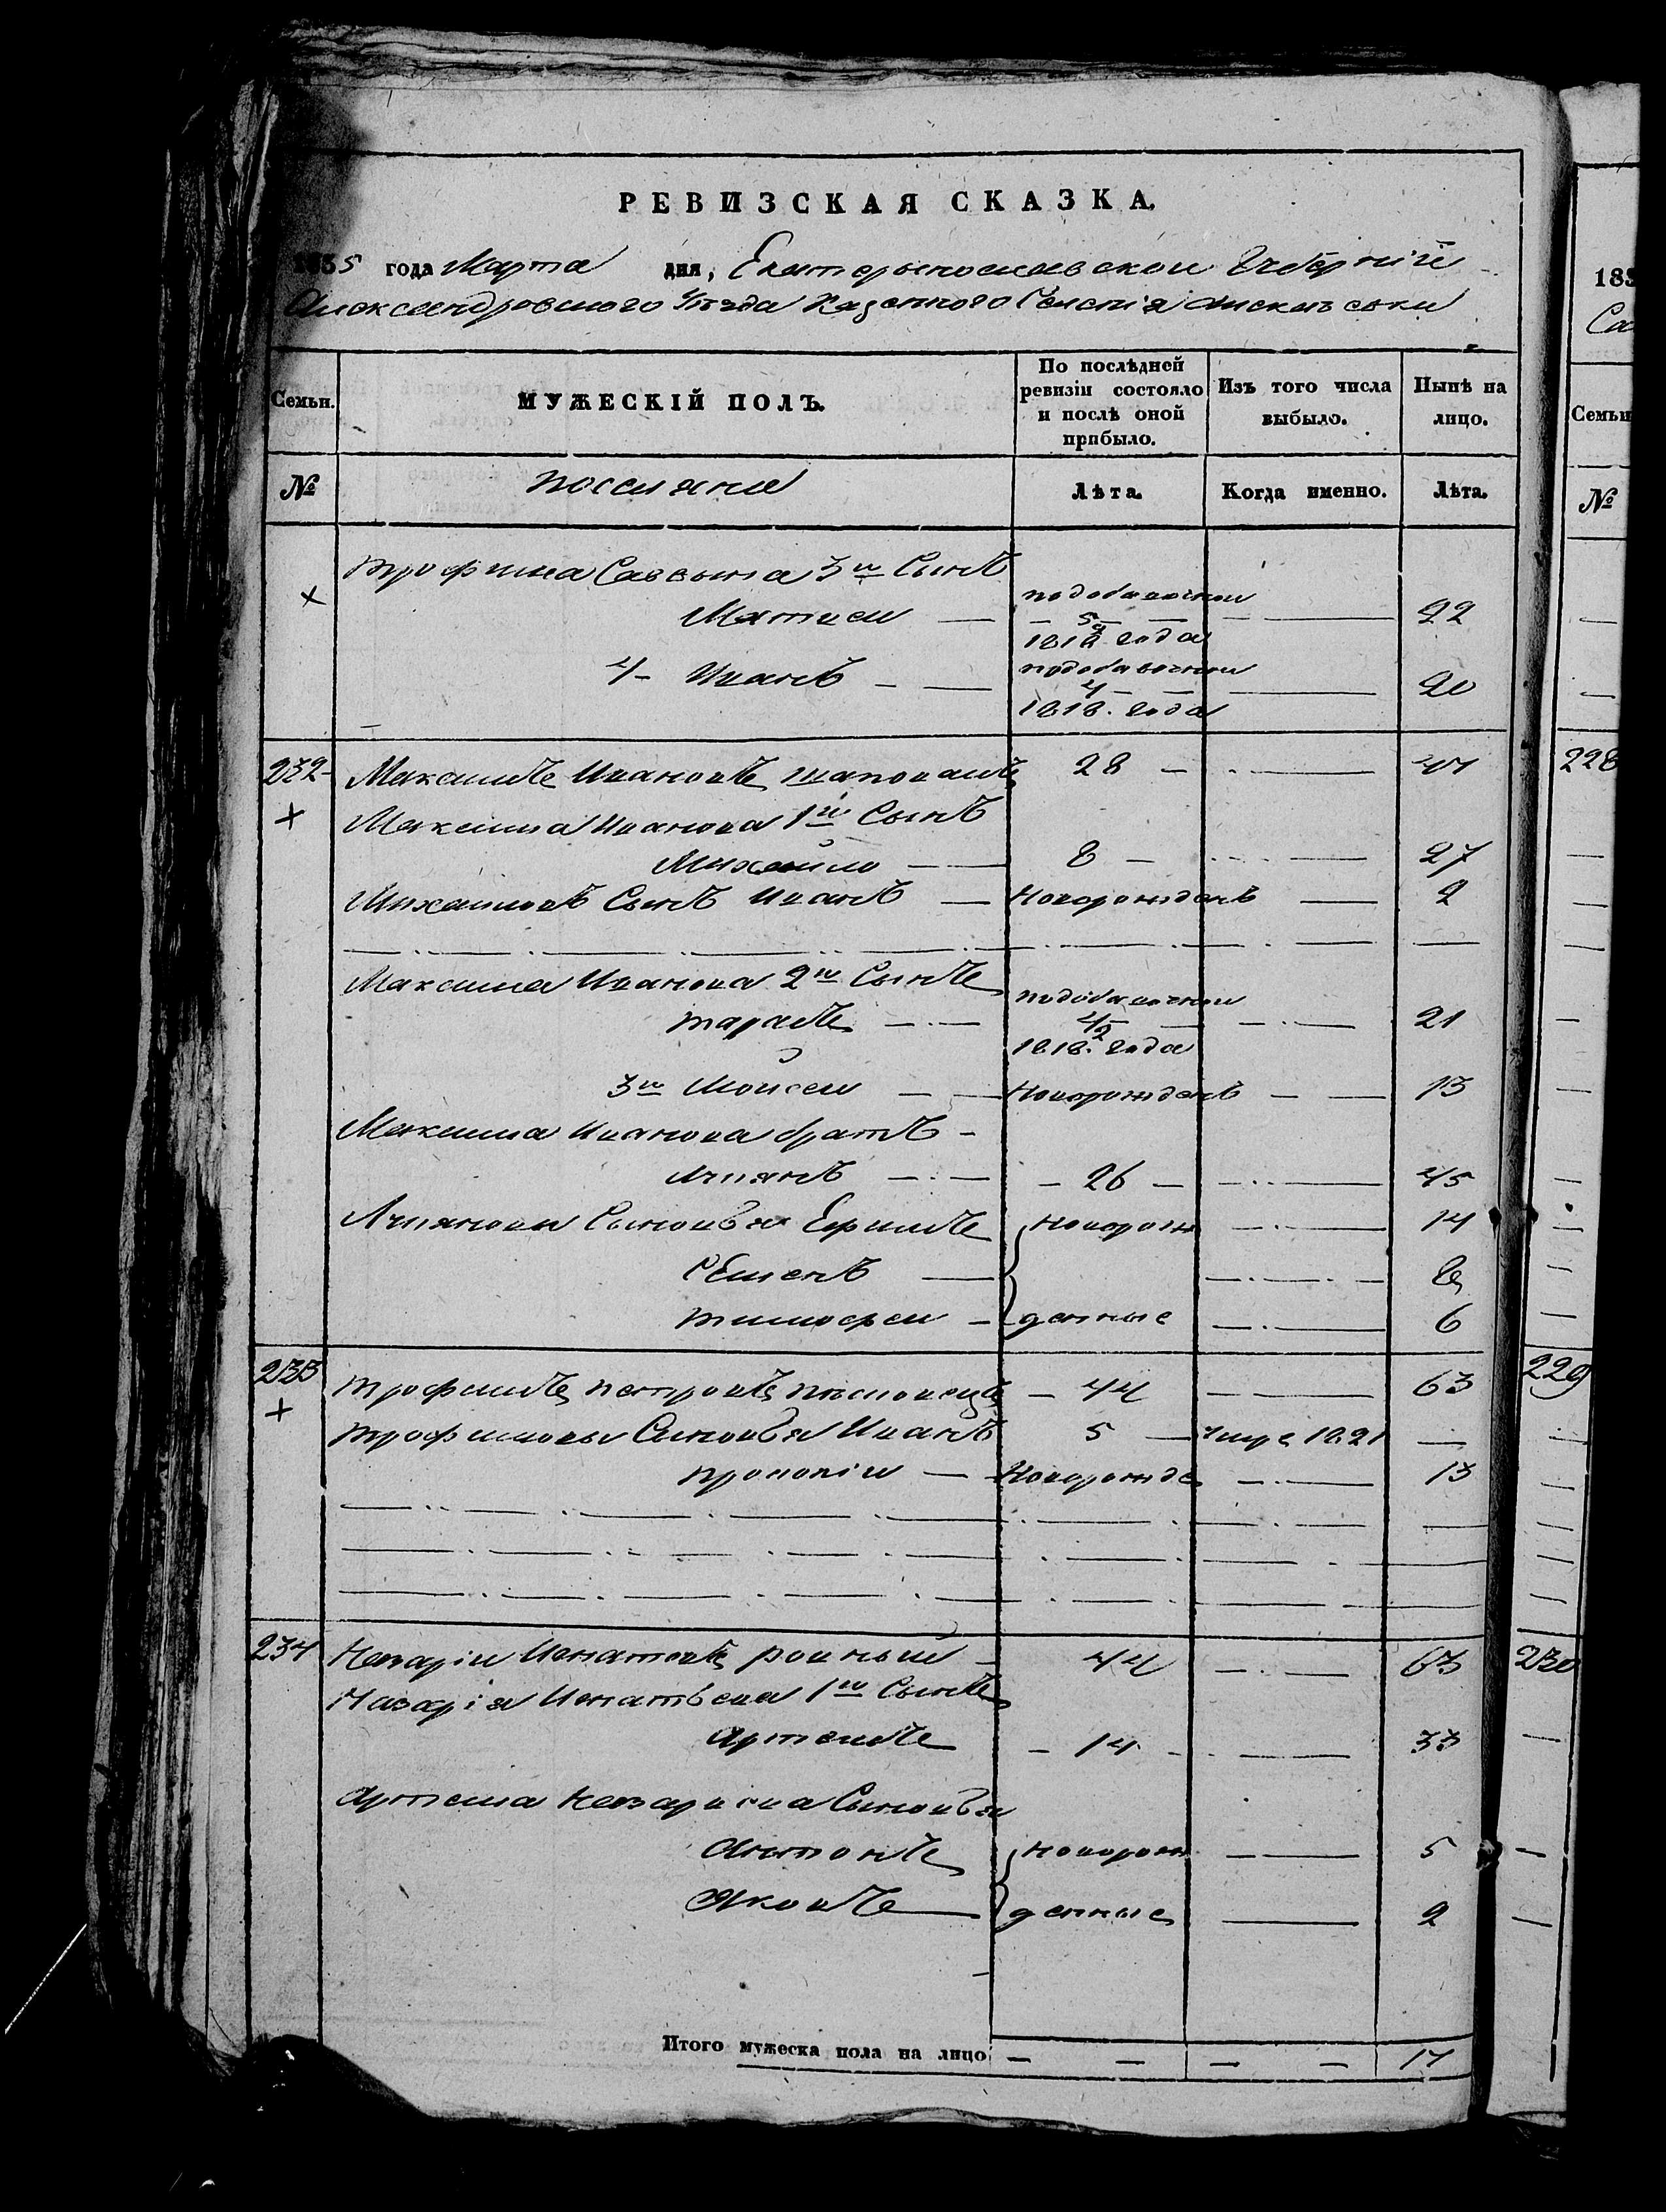 РЕВИЗСКАЯ СКАЗКА.
1835 года Марта дня, Екатерынославской Губерній
Александровского Уѣзда Казенного Селенія
Семьи. МУЖЕСКІЙ ПОЛЪ. По послѣдней ревизіи состояло и послѣ оной прибыло. Изъ того числа выбыло. Нынѣ на лицо.
№ поселяне Лѣта. Когда именно. Лѣта.
Трофима Саввына 3й Сынъ
Матвей — 5 22
1818 года
4- Иванъ — 4 20
1818. года
232 Максимъ Ивановъ шаповалъ 28 — 47
Максима Иванова 1й Сынъ
Михайло — 8 — 27
Михаиловъ Сынъ Иванъ — Новорожденъ — 2
Максима Иванова 2й Сынъ
Тарасъ — 21
1818. года
3й Моисей — Новорожденъ — 13
Максима Иванова братъ -
Лупянъ — 26 — 45
Лупяновы Сыновья Ефимъ новорож 14
Семенъ — 8
Тимофей — денные 6
233 Трофимъ Петровъ — 44 — 63
Трофимовы Сыновья Иванъ 5 — умре 1821 —
Прокопій — Новорожде 13
234 Назарій Игнатовъ 44 — 63
Назарія Игнатьева 1й Сынъ
Артемъ — 14 — 33
Артема Назарьева Сыновья
Антонъ новорож — 5
Яковъ — денные — 2
Итого мужеска пола на лицо — — — — 17
183
Са
Семьи
№
228
229
230